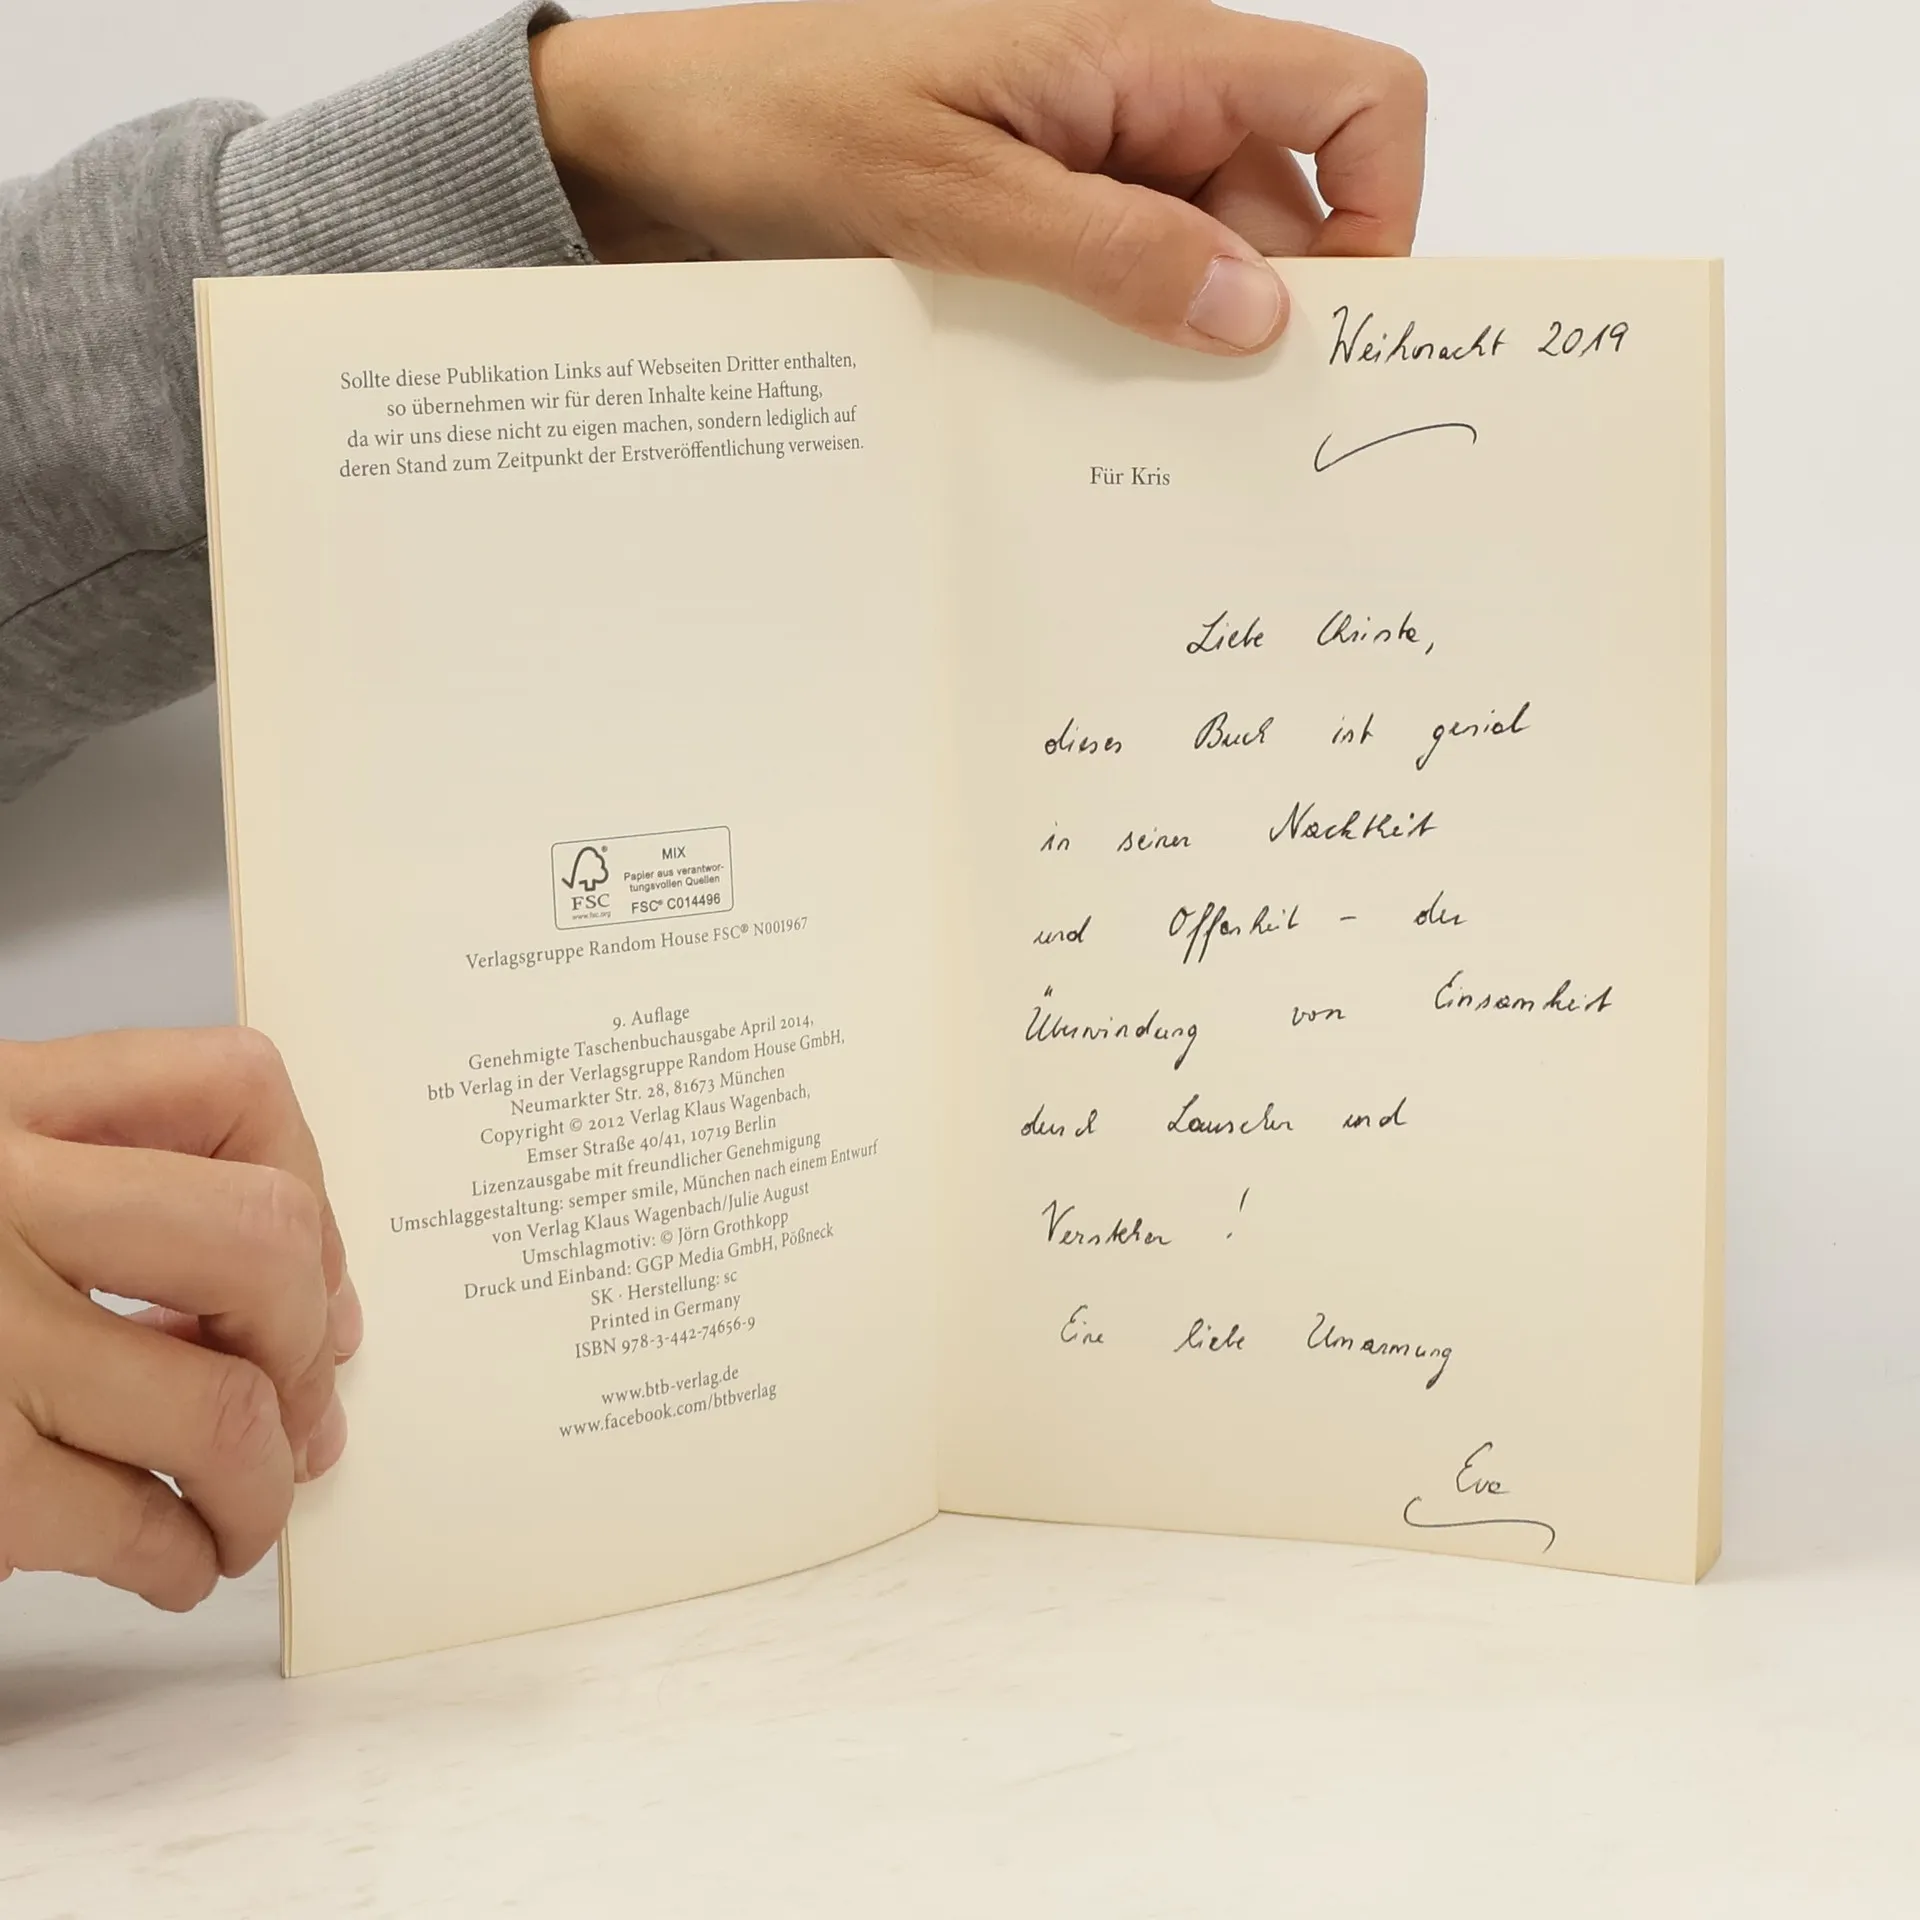 Sollte diese Publikation Links auf Webseiten Dritter enthalten,
so übernehmen wir für deren Inhalte keine Haftung,
da wir uns diese nicht zu eigen machen, sondern lediglich auf
deren Stand zum Zeitpunkt der Erstveröffentlichung verweisen.
MIX
Papier aus verantwor-
tungsvollen Quellen
FSC® C014496
FSC
www.fsc.org
Verlagsgruppe Random House FSC® N001967
9. Auflage
Genehmigte Taschenbuchausgabe April 2014,
btb Verlag in der Verlagsgruppe Random House GmbH,
Neumarkter Str. 28, 81673 München
Copyright © 2012 Verlag Klaus Wagenbach,
Emser Straße 40/41, 10719 Berlin
Lizenzausgabe mit freundlicher Genehmigung
Umschlaggestaltung: semper smile, München nach einem Entwurf
von Verlag Klaus Wagenbach/Julie August
Umschlagmotiv: © Jörn Grothkopp
Druck und Einband: GGP Media GmbH, Pößneck
SK · Herstellung: sc
Printed in Germany
ISBN 978-3-442-74656-9
www.btb-verlag.de
www.facebook.com/btbverlag
Weihnacht 2019
Für Kris
Liebe Christa,
dieses Buch ist genial
in seiner Nacktheit
und Offenheit – der
Überwindung von Einsamkeit
durch Lauschen und
Verstehen!
Eine liebe Umarmung
Eva